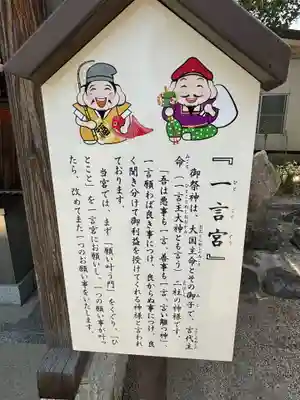 『一言宮』
ひとことぐう
御祭神は、大国主命とその御子で、言代主
命(一言主大神とも言う)二社の神様です。
「吾は悪事も一言、善事も一言、言い離つ神」
一言願わば良き事につけ、良からぬ事につけ、良
く聞き分けて御利益を授けてくれる神様と言われ
ております。
当宮では、まず「願い叶う門」をくぐり、「ひ
とこと」を一言宮にお願いし、一つの願い事が叶っ
たら、改めてまた一つのお願い事をいたします。